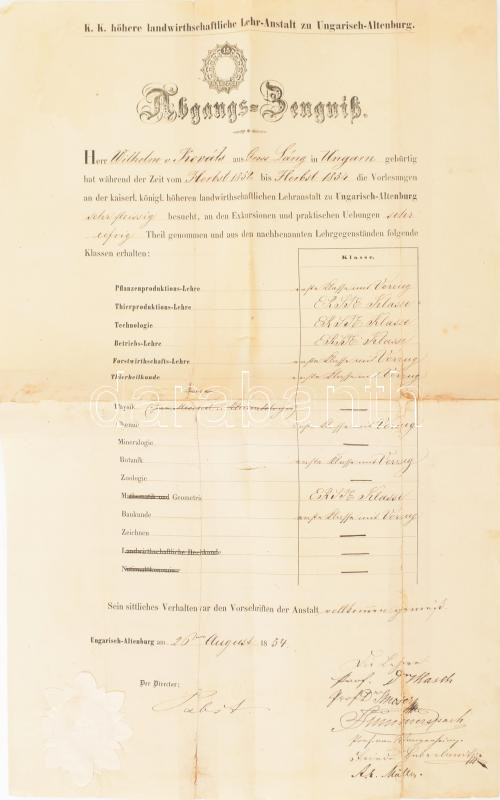 K. K. höhere landwirthschaftliche Lehr-Anstalt zu Ungarisch-Altenburg.
Abgangs=Zeugniß.
Herr Wilhelm v. Kováts aus Láng in Ungarn gebürtig
hat während der Zeit vom Herbst 1852 bis Herbst 1854 die Vorlesungen
an der kaiserl. königl. höheren landwirthschaftlichen Lehranstalt zu Ungarisch-Altenburg
sehr fleissig besucht, an den Exkursionen und praktischen Uebungen sehr
eifrig Theil genommen und aus den nachbenannten Lehrgegenständen folgende
Klassen erhalten:
Klasse.
Pflanzenproduktions-Lehre erste Klasse mit Vorzug
Thierproduktions-Lehre ERSTE Klasse
Technologie ERSTE Klasse
Betriebs-Lehre ERSTE Klasse
Forstwirthschafts-Lehre erste Klasse mit Vorzug
Thierheilkunde erste Klasse mit Vorzug
Physik
Chemie erste Klasse mit Vorzug
Mineralogie
Botanik erste Klasse mit Vorzug
Zoologie
Mathematik und Geometrie ERSTE Klasse
Baukunde erste Klasse mit Vorzug
Zeichnen
Landwirthschaftliche Rechtskunde
Nationalökonomie
darabanth
Sein sittliches Verhalten war den Vorschriften der Anstalt vollkommen gemäß.
Ungarisch-Altenburg am 26ten August 1854
Der Director:
Pabst
Die Lehrer
Prof. Dr Masch
Prof. Dr Moser
Haberlandt
Ad. Müller